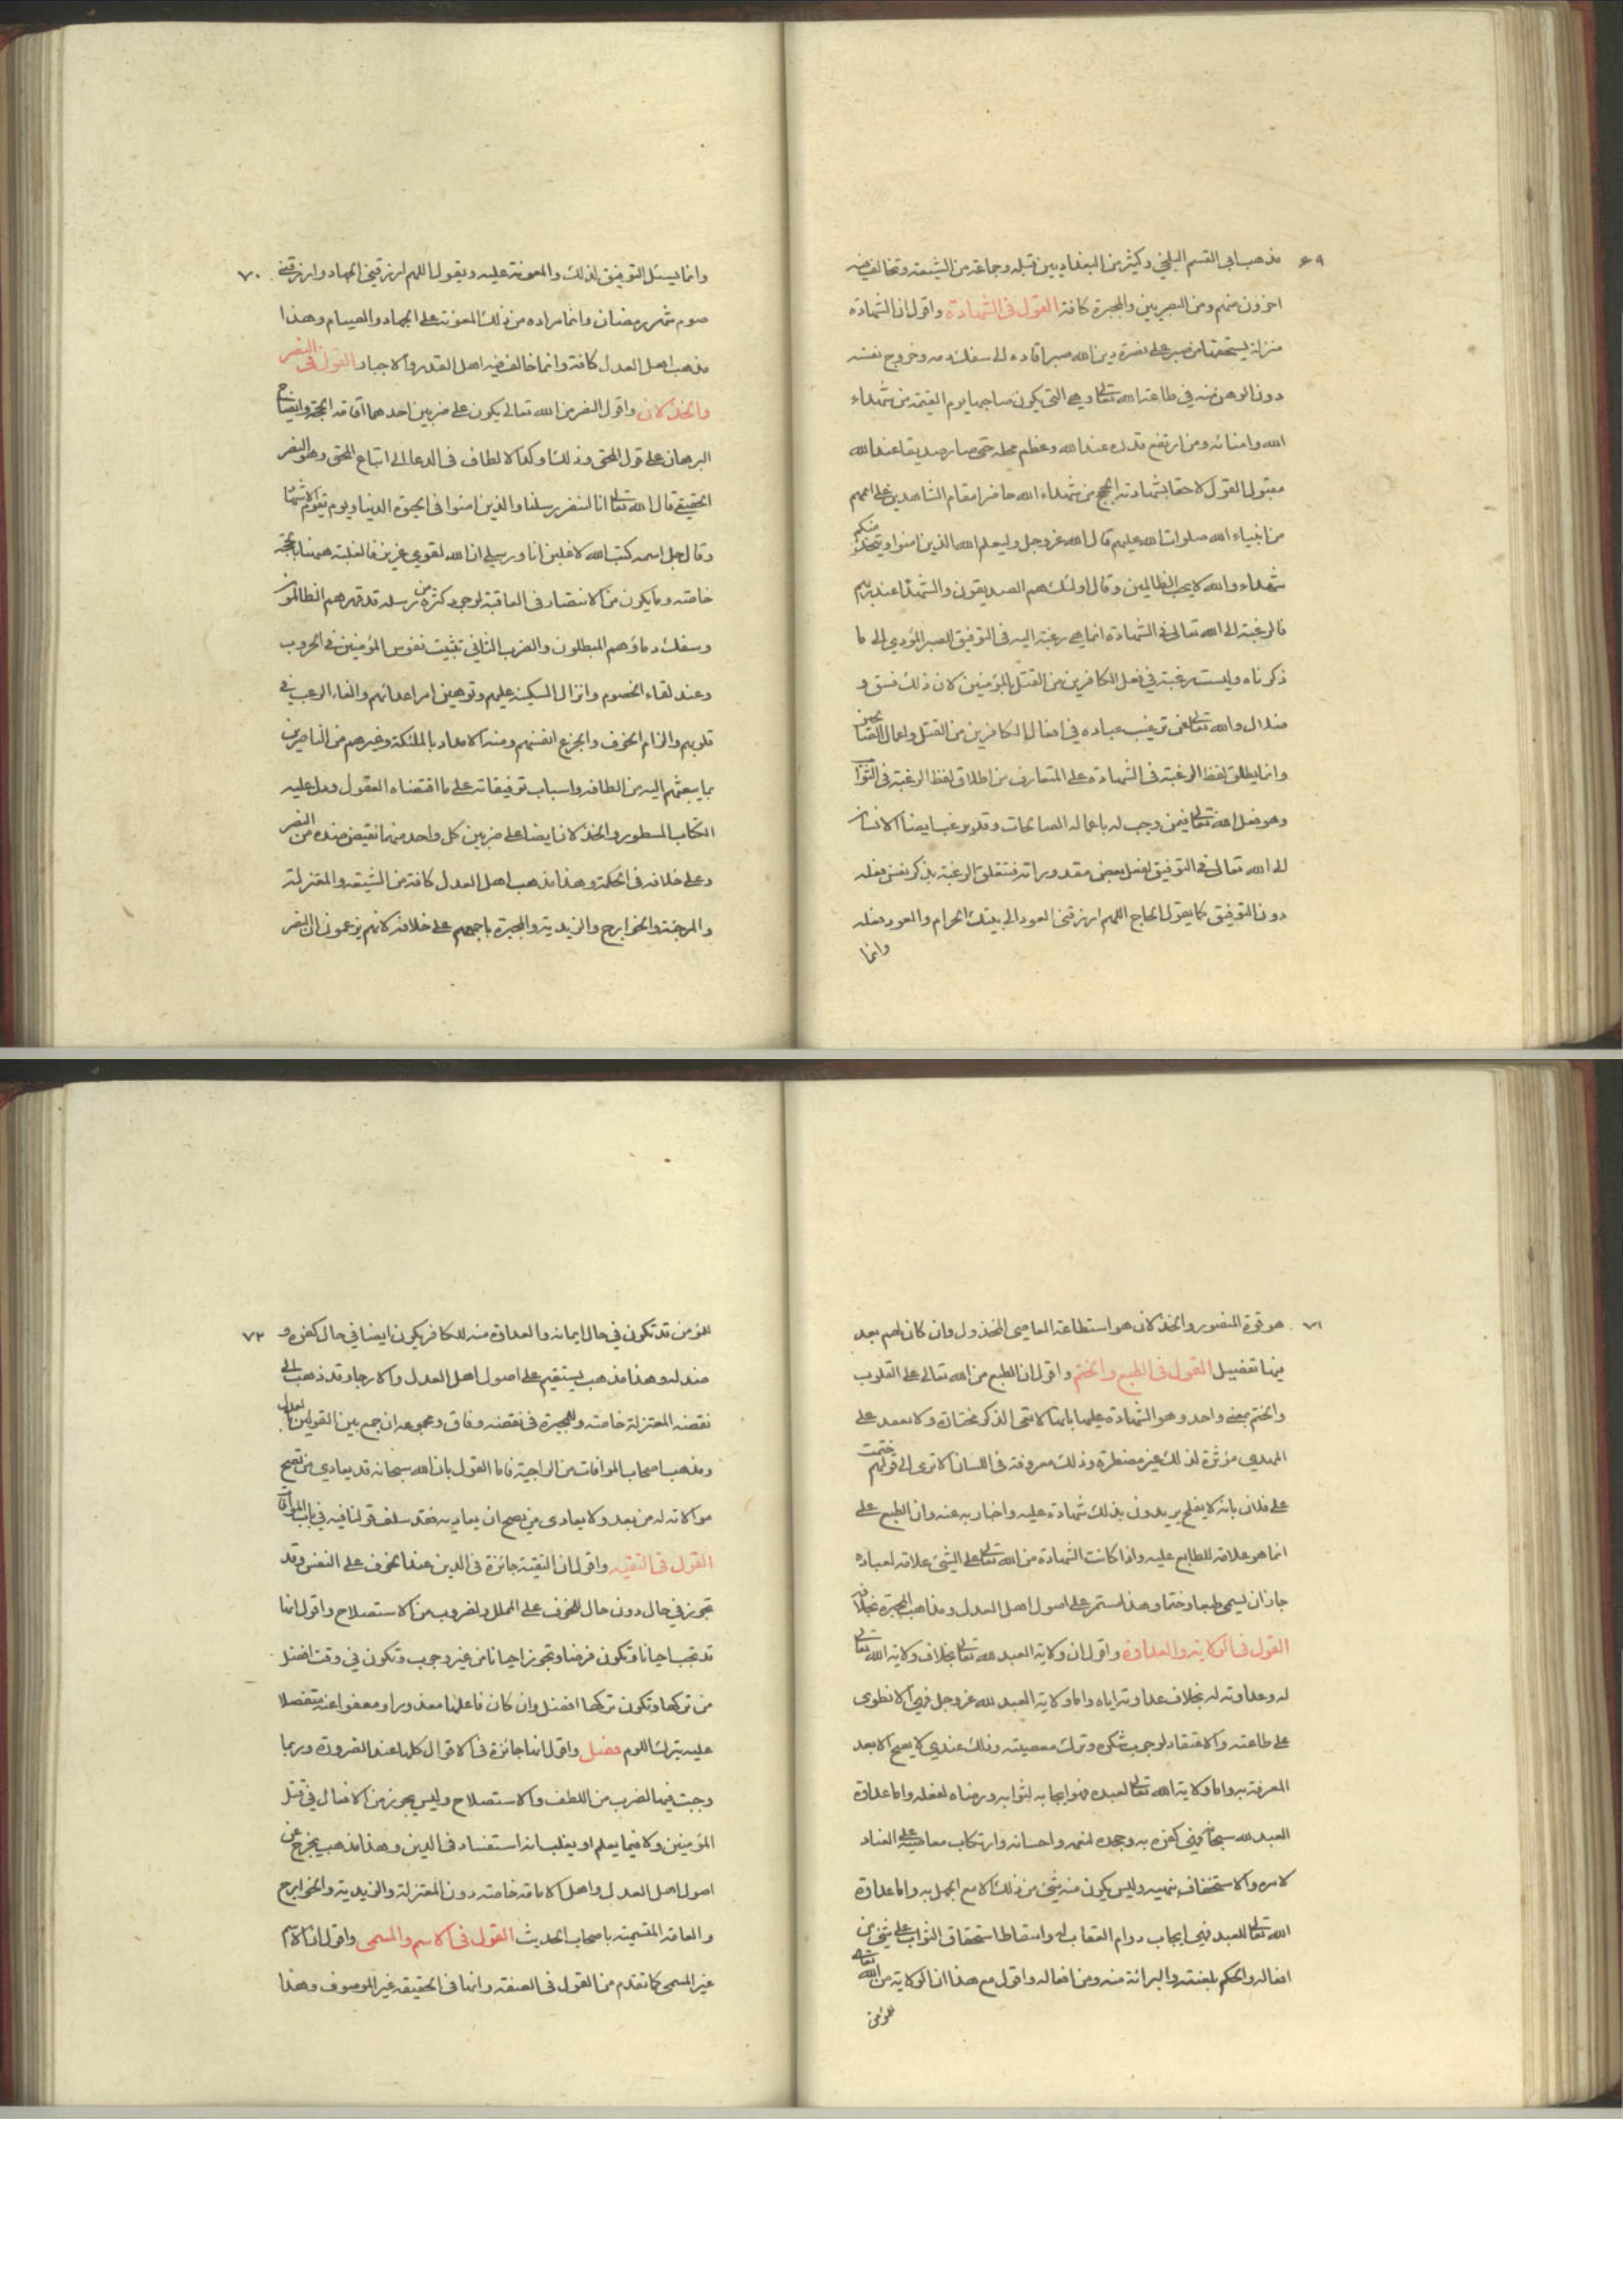 ٦٩
مذهب ابي القسم البلخي وكثير من البغداديين قبله وجماعة من الشيعة وتخالف فيه
اخرون منهم ومن البصريين والمجبرة كافة القول في الشهادة واقول ان الشهادة
منزلة يستحقها من صبر على نصرة دين الله صبرا قاده الى سفك دمه وخروج نفسه
دون الوهن منه في طاعة الله تعالى وهي التي يكون صاحبها يوم القيمة من شهداء
الله وامنائه ومن ارتفع قدره عند الله وعظم محله حتى صار صديقا عند الله
مقبول القول لاحقا بشهادته الحجج من شهداء الله حاضرا مقام الشاهدين على اممهم
من انبياء الله صلوات الله عليهم قال الله عز وجل وليعلم الله الذين امنوا ويتخذ منكم
شهداء والله لا يحب الظالمين وقال اولئك هم الصديقون والشهداء عند ربهم
فالرغبة الى الله تعالى في الشهادة انما هي رغبة اليه في التوفيق للصبر المؤدي الى ما
ذكرناه وليست رغبة في فعل الكافرين من القتل بالمؤمنين لان ذلك فسق و
ضلال والله تعالى عن ترغيب عباده في افعال الكافرين من القتل واعمال الظا
وانما يطلق لفظ الرغبة في الشهادة على المتعارف من اطلاق لفظ الرغبة في الثواب
وهو فعل الله تعالى فيمن وجب له باعماله الصالحات وقد يرغب ايضا الانسان
الى الله تعالى في التوفيق لفعل بعض مقدوراته فتتعلق الرغبة بذكر نفس فعله
دون التوفيق كما يقول الحاج اللهم ارزقني العود الى بيتك الحرام والعود فعله
وانما
٧٠
وانما يسئل التوفيق لذلك والمعونة عليه ويقول اللهم ارزقني الجهاد وارزقني
صوم شهر رمضان وانما مراده من ذلك المعونة على الجهاد والصيام وهذا
مذهب اهل العدل كافة وانما خالف فيه اهل القدر والاجبار القول في النصر
والخذلان واقول النصر من الله تعالى يكون على ضربين احدهما اقامة الحجة وايضاح
البرهان على قول المحق وذلك اوكد الالطاف في الدعا الى اتباع المحق وهو النصر
الحقيقي قال الله تعالى انا لننصر رسلنا والذين امنوا في الحيوة الدنيا ويوم يقوم الاشهاد
وقال جل اسمه كتب الله لاغلبن انا ورسلي ان الله لقوي عزيز فالغلبة ههنا بالحجة
خاصة وما يكون من الانتصار في العاقبة لوجود كثرة من رسله قد قهرهم الظالمون
وسفك دماؤهم المبطلون والضرب الثاني تثبيت نفوس المؤمنين في الحروب
وعند لقاء الخصوم وانزال السكينة عليهم وتوهين امر اعدائهم والقاء الرعب في
قلوبهم والزام الخوف والجزع انفسهم ومنه الامداد بالملئكة وغيرهم من الناصرين
بما يبعثهم اليه من الطافه واسباب توفيقاته على ما اقتضاه العقول ودل عليه
الكتاب المسطور والخذلان ايضا على ضربين كل واحد منهما نقيض ضده من النصر
وعلى خلافه في الحكمة وهذا مذهب اهل العدل كافة من الشيعة والمعتزلة
والمرجئة والخوارج والزيدية والمجبرة باجمعهم على خلافه لانهم يزعمون ان النصر
٧١
هو قوة المنصور والخذلان هو استطاعة العاصي المخذول وان كان لهم بعد
فيها تفصيل القول في الطبع والختم واقول ان الطبع من الله تعالى على القلوب
والختم بمعنى واحد وهو الشهادة عليها بانها لا تعي الذكر مختارة ولا تعمد على
الهدى مؤثرة لذلك غير مضطرة وذلك معروف في اللسان الا ترى الى قولهم ختمت
على فلان بانه لا يفلح يريدون بذلك شهادة عليه واخبار به عنه وان الطبع على
انما هو علامة للطابع عليه واذا كانت الشهادة من الله تعالى على الشيئ علامة لعباده
جاز ان يسمى طبعا وختما وهذا مستمر على اصول اهل العدل ومذاهب المجبرة بخلافه
القول في الولاية والعداوة واقول ان ولاية العبد لله تعالى بخلاف ولاية الله تعالى
له وعداوته له بخلاف عداوته اياه واما ولاية العبد لله عز وجل فهي الانطوى
على طاعته والاعتقاد لوجوب شكره وترك معصيته وذلك عندي لا يصح الا بعد
المعرفة به واما ولاية الله تعالى لعبده فهو ايجابه لثوابه ورضاه لفعله واما عداوة
العبد لله سبحانه فهي كفره به وجحده لنعمه واحسانه وارتكاب معاصيه على العناد
لامره والاستخفاف بنهيه وليس يكون منه شيئ من ذلك الا مع الجهل به واما عداوة
الله تعالى للعبد فهي ايجاب دوام العقاب له واسقاط استحقاق الثواب على شيئ من
افعاله والحكم بلعنته والبرائة منه ومن افعاله واقول مع هذا ان الولاية من الله تعالى
للمؤمن
٧٢
للمؤمن قد تكون في حال ايمانه والعداوة منه للكافر يكون ايضا في حال كفره و
ضلاله وهذا مذهب يستقيم على اصول اهل العدل والارجاء وقد ذهب الى
نقضه المعتزلة خاصة وللمجبرة في نقضه وفاق ومجموعه ان جمع بين القولين
ومذهب اصحاب الموافات من الراجية فاما القول بان الله سبحانه قد يعادي من تصح
موالاته له من بعد ولا يعادى من يصح ان يعاديه فقد سلف قولنا فيه في باب الموافات
القول في التقية واقول ان التقية جائزة في الدين عند الخوف على النفس وقد
تجوز في حال دون حال للخوف على المال ولضروب من الاستصلاح واقول انها
قد تجب احيانا وتكون فرضا وتجوز احيانا من غير وجوب وتكون في وقت افضل
من تركها وتكون تركها افضل وان كان فاعلها معذورا ومعفوا عنه متفضلا
عليه بترك اللوم فصل واقول انها جائزة في الاقوال كلها عند الضرورة وربما
وجبت فيها لضرب من اللطف والاستصلاح وليس يجوز من الافعال في قتل
المؤمنين ولا فيما يعلم او يغلب انه استفساد في الدين وهذا مذهب يخرج عن
اصول اهل العدل واهل الامامة خاصة دون المعتزلة والزيدية والخوارج
والعامة المتسمية باصحاب الحديث القول في الاسم والمسمى واقول ان الاسم
غير المسمى كما تقدم من القول في الصفة وانها في الحقيقة غير الموصوف وهذا